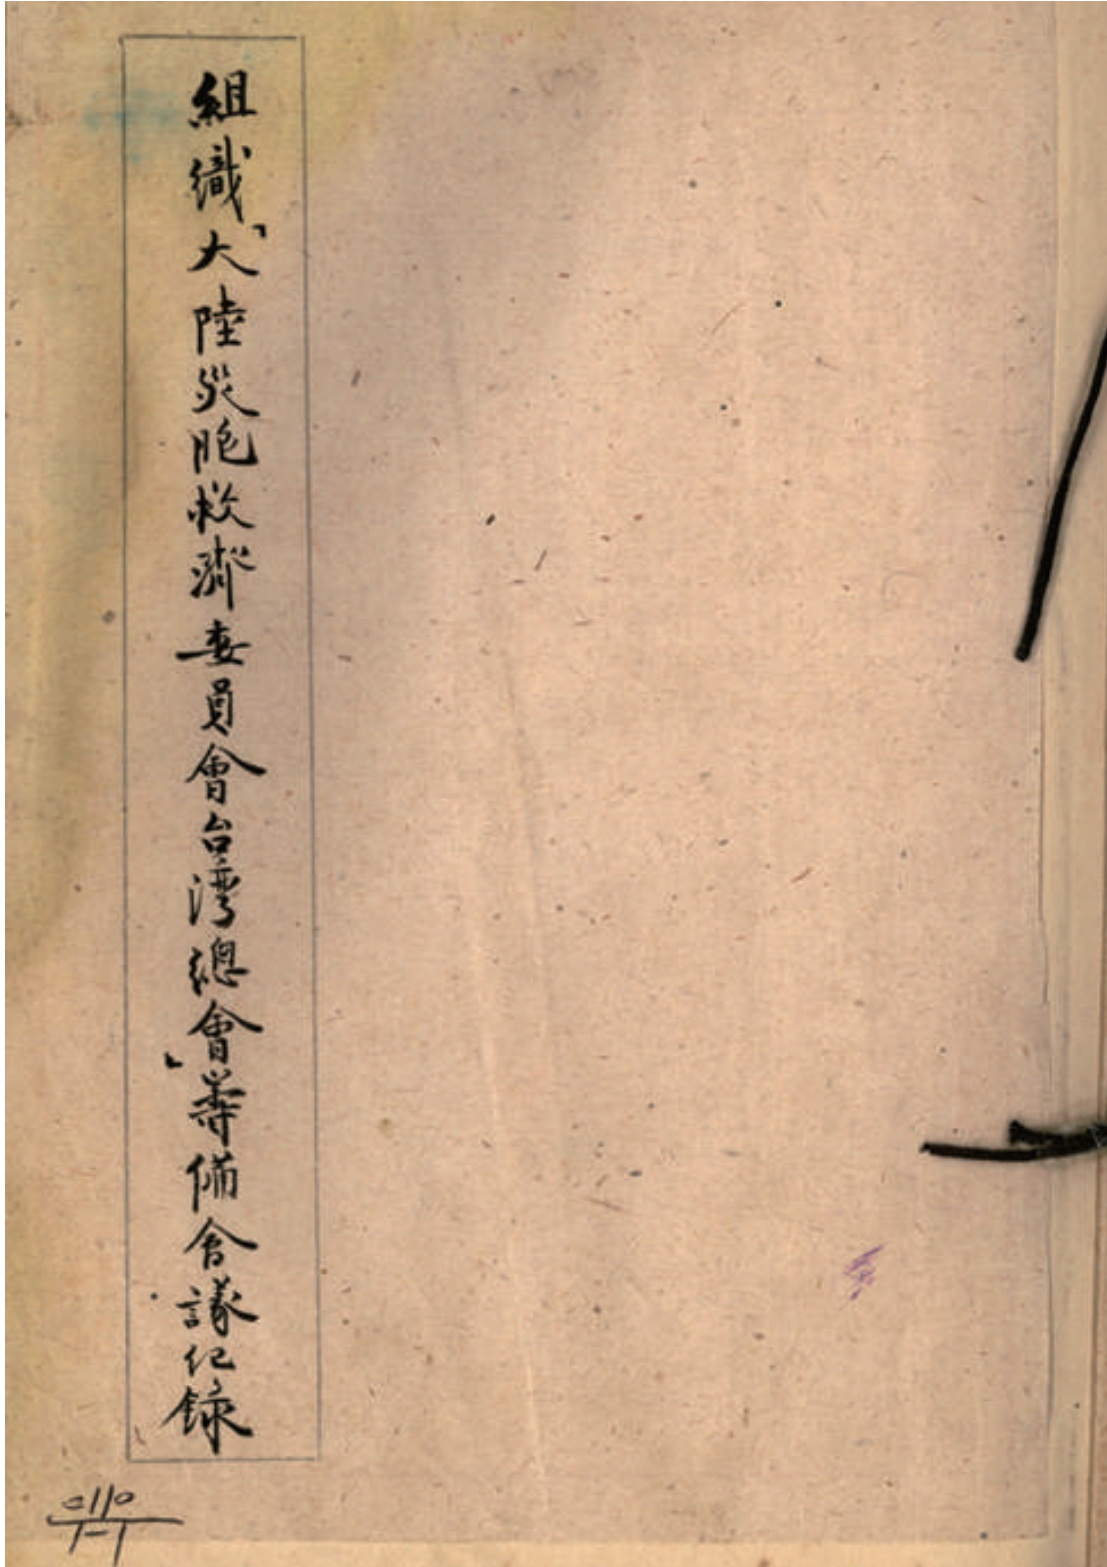 組織「大陸災胞救濟委員會台湾總會」籌備會議纪錄
0110
1-1